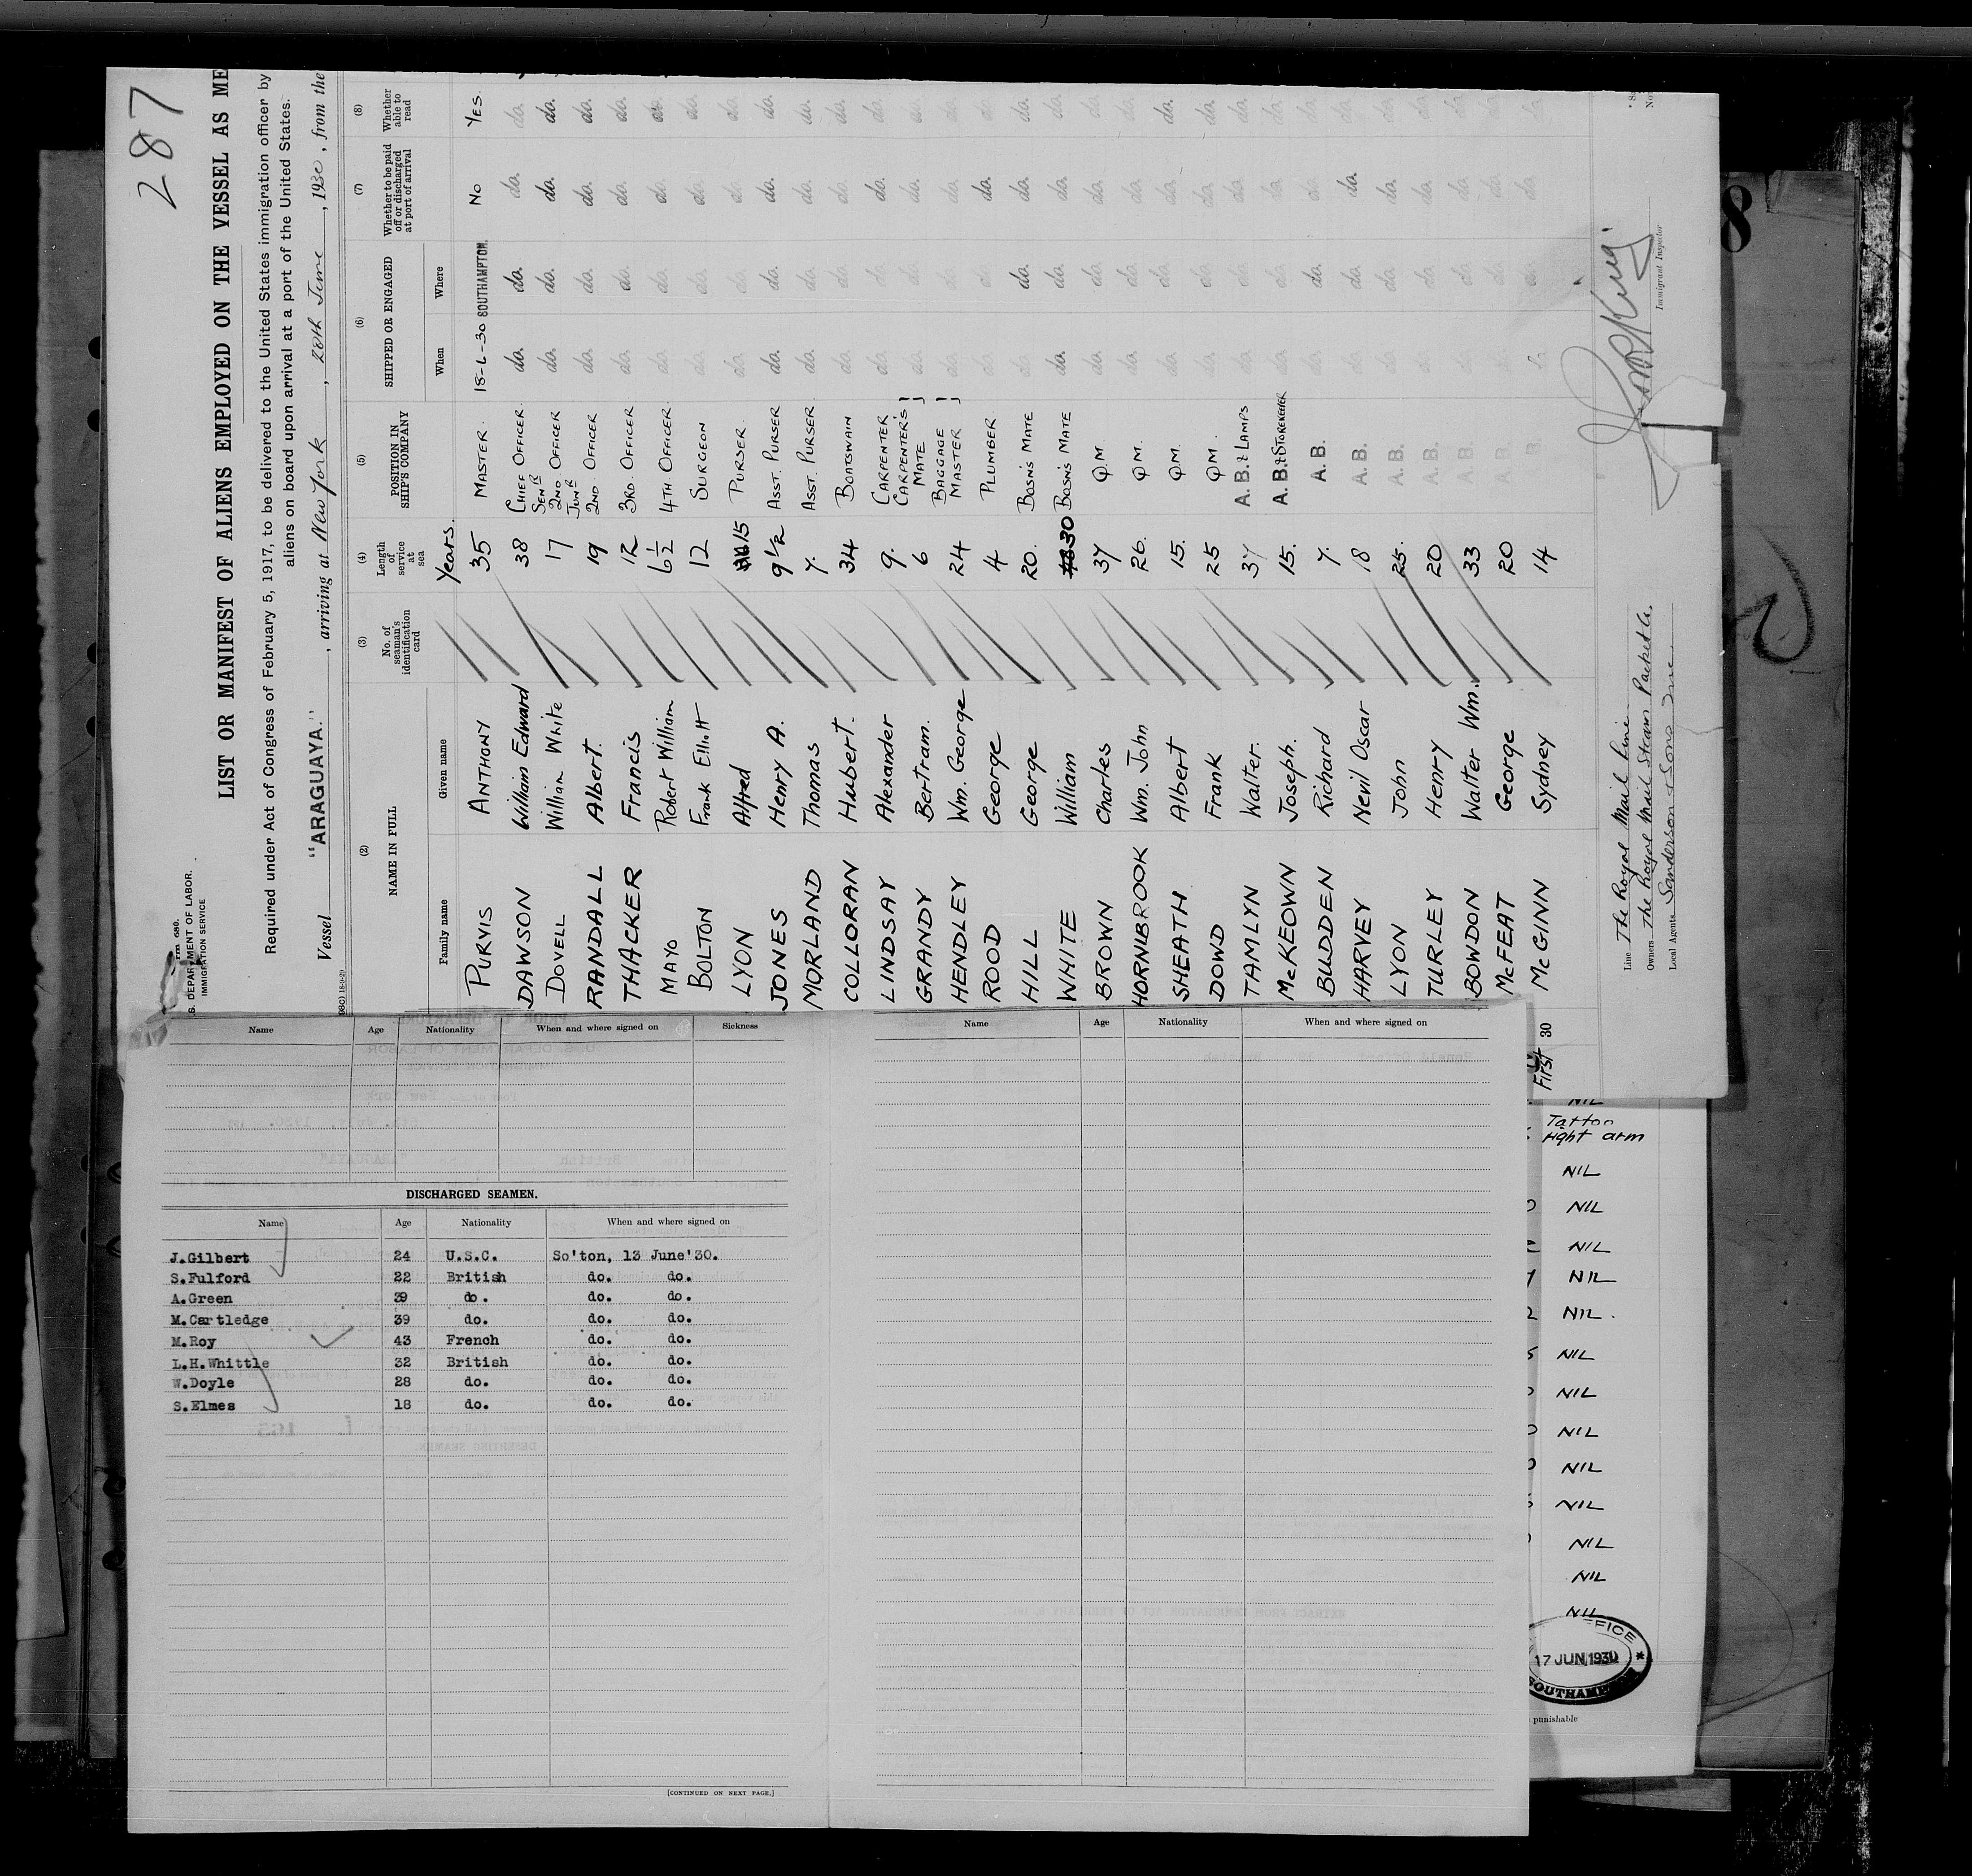 287
S. DEPARTMENT OF LABOR.
IMMIGRATION SERVICE
LIST OR MANIFEST OF ALIENS EMPLOYED ON THE VESSEL AS ME
Required under Act of Congress of February 5, 1917, to be delivered to the United States immigration officer by
aliens on board upon arrival at a port of the United States.
Vessel "ARAGUAYA." , arriving at New York , 28th June , 1930, from the
(2) (3) (4) (5) (6) (7) (8)
NAME IN FULL No. of seaman's identification card Length of service at sea POSITION IN SHIP'S COMPANY SHIPPED OR ENGAGED Whether to be paid off or discharged at port of arrival Whether able to read
Family name Given name When Where
Years.
PURVIS ANTHONY 35 MASTER. 18-6-30 SOUTHAMPTON. No YES.
DAWSON William Edward 38 CHIEF OFFICER. do. do. do. do.
DOVELL William White 17 SENR 2ND. OFFICER do. do. do. do.
RANDALL Albert. 19 JUNR 2ND. OFFICER do. do. do. do.
THACKER Francis 12 3RD. OFFICER do. do. do. do.
MAYO Robert William 6 1/2 4TH OFFICER. do. do. do. do.
BOLTON Frank Elliott 12 SURGEON do. do. do. do.
LYON Alfred 15 PURSER. do. do. do. do.
JONES Henry A. 9 1/2 ASST. PURSER do. do. do. do.
MORLAND Thomas 7. ASST. PURSER. do. do. do. do.
COLLORAN Hubert. 34 BOATSWAIN do. do. do. do.
LINDSAY Alexander 9. CARPENTER do. do. do. do.
GRANDY Bertram. 6 CARPENTER'S MATE do. do. do. do.
HENDLEY Wm. George 24 BAGGAGE MASTER do. do. do. do.
ROOD George 4 PLUMBER do. do. do. do.
HILL George 20. BOSN'S MATE do. do. do. do.
WHITE William 30 BOSN'S MATE do. do. do. do.
BROWN Charles 37 Q.M. do. do. do. do.
HORNIBROOK Wm. John 26. Q.M. do. do. do. do.
SHEATH Albert 15. Q.M. do. do. do. do.
DOWD Frank 25 Q.M. do. do. do. do.
TAMLYN Walter. 37 A.B. & LAMPS do. do. do. do.
McKEOWN Joseph. 15. A.B. & STOREKEEPER do. do. do. do.
BUDDEN Richard 7. A.B. do. do. do. do.
HARVEY Nevil Oscar 18 A.B. do. do. do. do.
LYON John 25. A.B. do. do. do. do.
TURLEY Henry 20 A.B. do. do. do. do.
BOWDON Walter Wm. 33 A.B. do. do. do. do.
McFEAT George 20 A.B. do. do. do. do.
McGINN Sydney 14 B. do. do. do.
30
First
Line The Royal Mail Line
Owners The Royal Mail Steam Packet Co.
Local Agents Sanderson & Sons Inc.
Immigrant Inspector
Name Age Nationality When and where signed on Sickness
DISCHARGED SEAMEN.
Name Age Nationality When and where signed on
J.Gilbert 24 U.S.C. So'ton, 13 June'30.
S.Fulford 22 British do. do.
A.Green 39 do. do. do.
M.Cartledge 39 do. do. do.
M.Roy 43 French do. do.
L.H.Whittle 32 British do. do.
W.Doyle 28 do. do. do.
S.Elmes 18 do. do. do.
[CONTINUED ON NEXT PAGE.]
Name Age Nationality When and where signed on
NIL
Tattoo
right arm
NIL
NIL
NIL
NIL
NIL.
NIL
NIL
NIL
NIL
NIL
NIL
NIL
NIL
17 JUN 1930
punishable
8